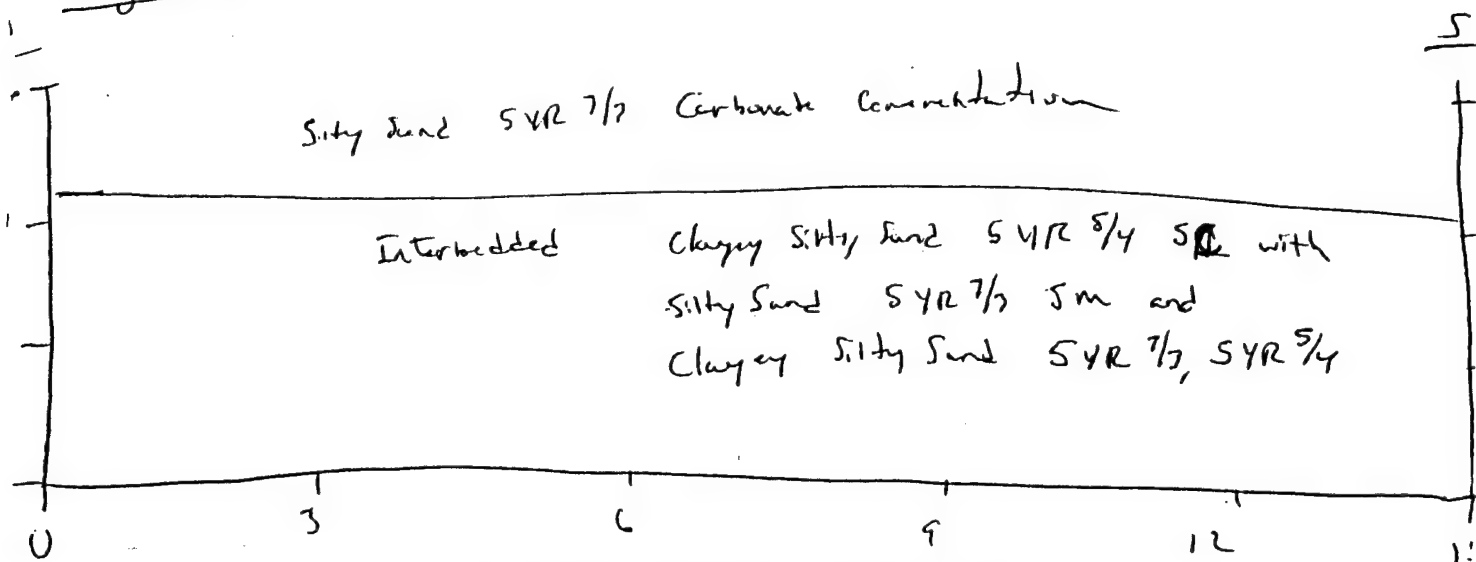 S
Silty Sand 5 YR 7/3 Carbonate Cementation
Interbedded Clayey Silty Sand 5 YR 5/4 SC with
Silty Sand 5 YR 7/3 SM and
Clayey Silty Sand 5 YR 7/3, 5 YR 5/4
0 3 6 9 12